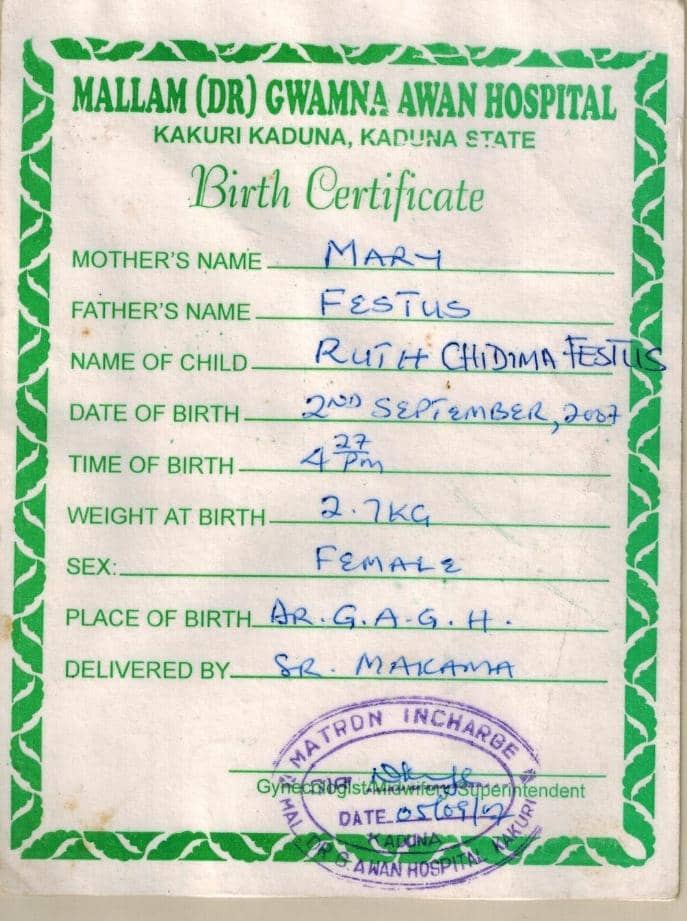 MALLAM (DR) GWAMNA AWAN HOSPITAL
KAKURI KADUNA, KADUNA STATE
Birth Certificate
MOTHER'S NAME MARY
FATHER'S NAME FESTUS
NAME OF CHILD RUTH CHIDIMA FESTUS
DATE OF BIRTH 2ND SEPTEMBER, 2007
TIME OF BIRTH 4 27 Pm
WEIGHT AT BIRTH 2.7KG
SEX: FEMALE
PLACE OF BIRTH DR. G. A. G. H.
DELIVERED BY SR. MAKAMA
MATRON INCHARGE
Gynecologist/Midwifery/Superintendent
DATE 05/09/07
KADUNA
MAL. DR G. AWAN HOSPITAL KAKURI